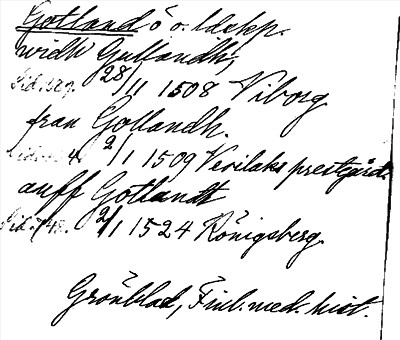 Gotland ö o. ldskp.
widh Gullandh,
Sid. 129. 28/11 1508 Viborg
fran Gollandh.
2/1 1509 Verilaks prestgård.
auff Gotlandt
2/1 1524 Königsberg
Grönblad, Finl. med. hist.